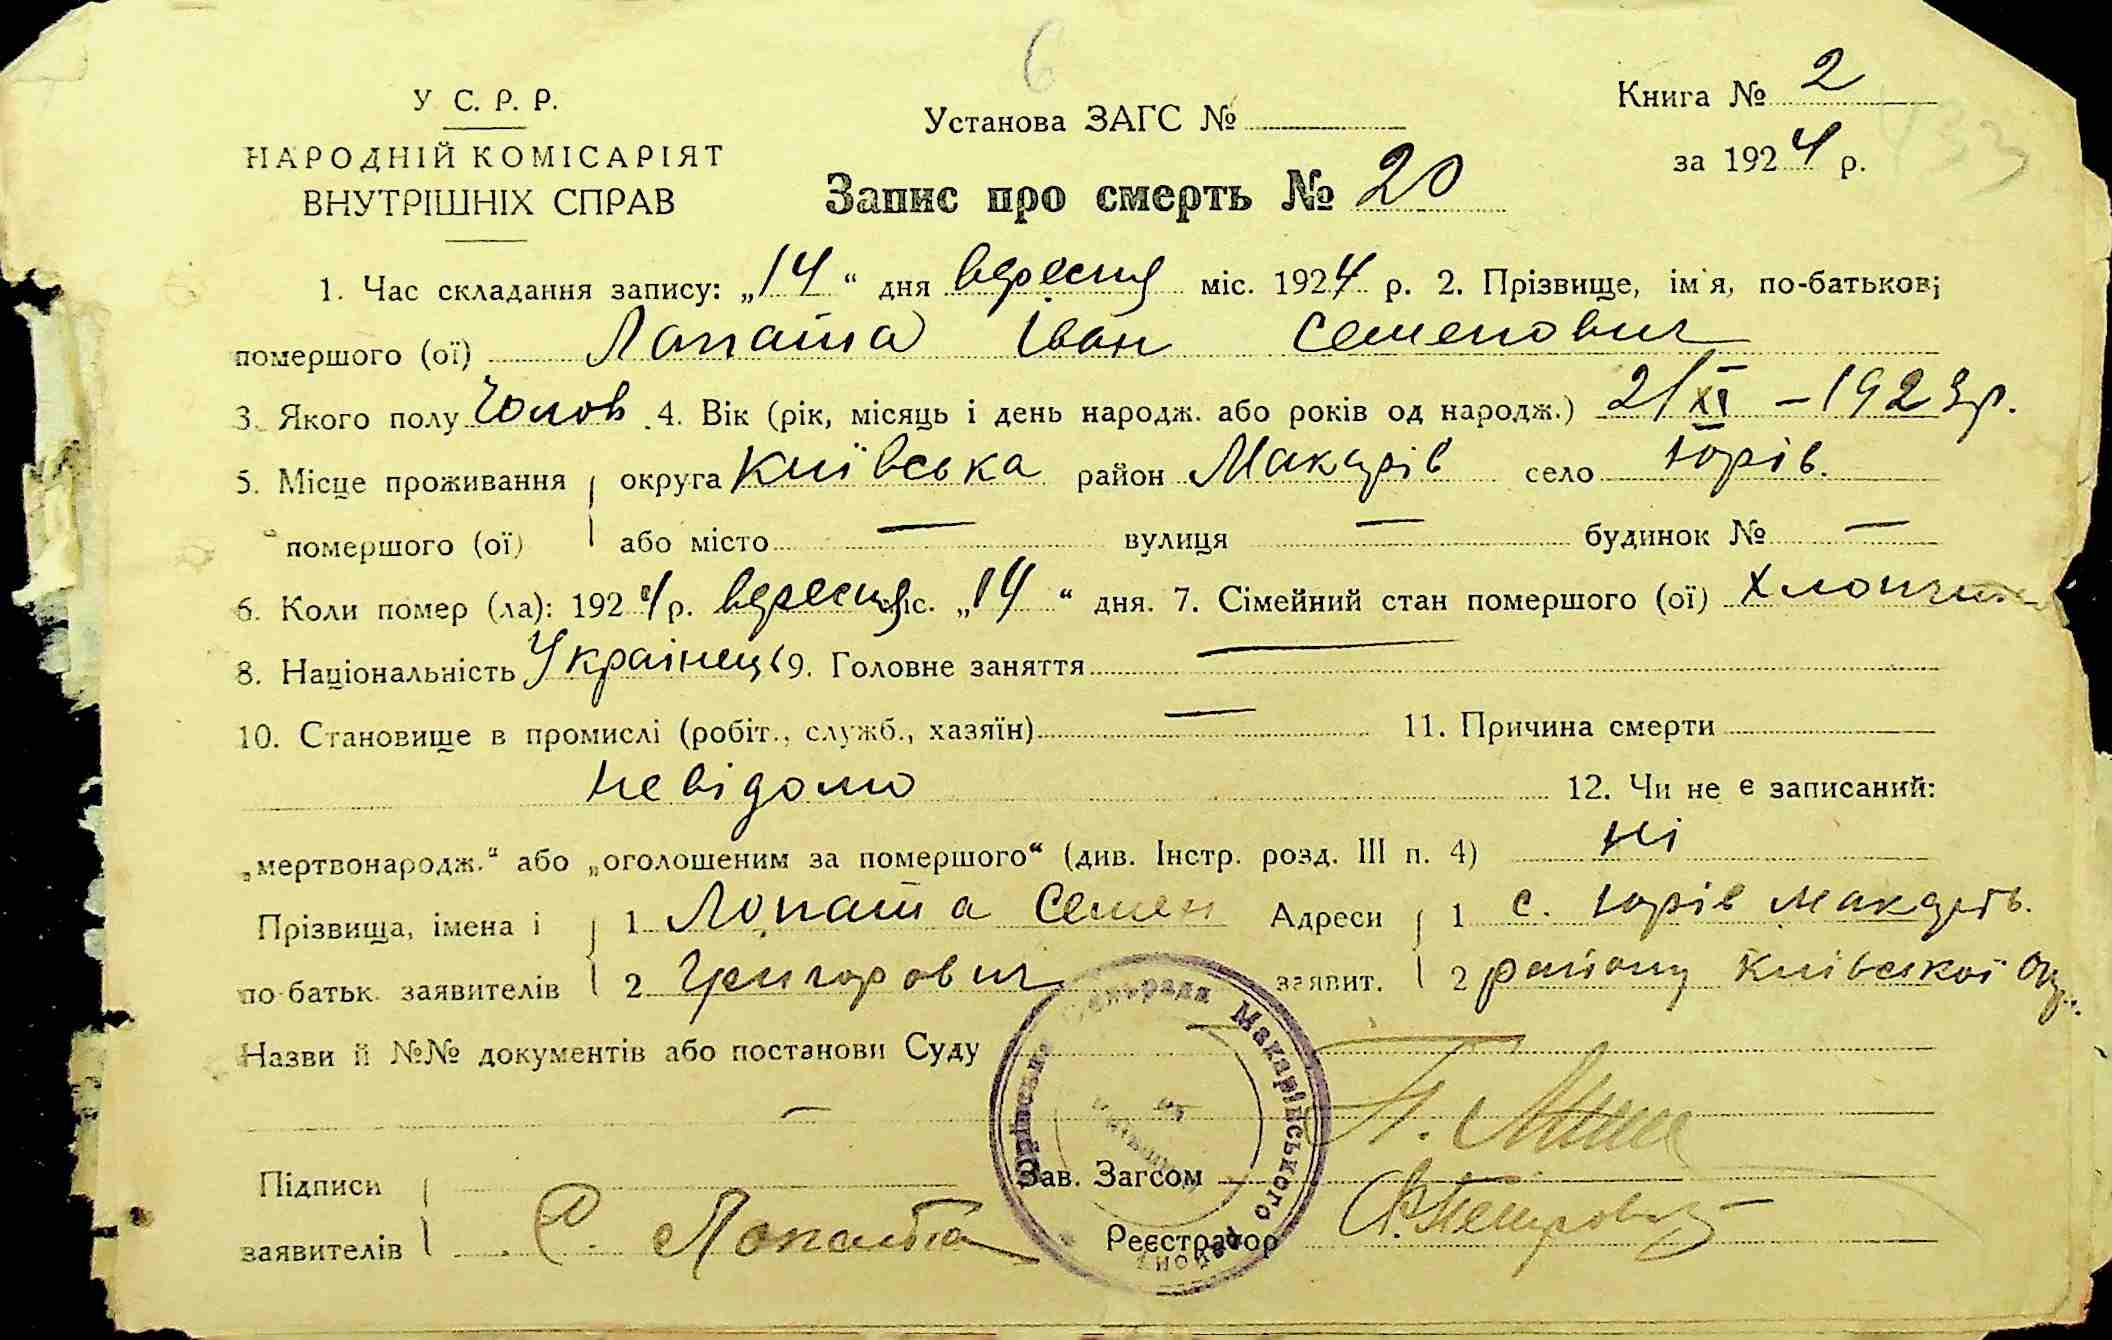 6
У С. Р. Р.
НАРОДНІЙ КОМІСАРІЯТ
ВНУТРІШНІХ СПРАВ
Установа ЗАГС №
Книга № 2
за 1924 р.
433
Запис про смерть № 20
1. Час складання запису: „14“ дня вересня міс. 1924 р. 2. Прізвище, ім'я, по-батькові
помершого (ої) Лопата Іван Семенович
3. Якого полу Чолов 4. Вік (рік, місяць і день народж. або років од народж.) 21/XI – 1923 р.
5. Місце проживання округа Київська район Макарів село Юрів.
помершого (ої) або місто — вулиця — будинок № —
6. Коли помер (ла): 1924 р. вересня міс. „14“ дня. 7. Сімейний стан помершого (ої) Хлопчик
8. Національність Українець 9. Головне заняття —
10. Становище в промислі (робіт., служб., хазяїн) — 11. Причина смерти
невідомо 12. Чи не є записаний:
„мертвонародж.“ або „оголошеним за помершого“ (див. Інстр. розд. III п. 4) ні
Прізвища, імена і 1 Лопата Семен Адреси 1 с. Юрів Макарів.
по-батьк. заявителів 2 Григорович заявит. 2 району Київської Окр.
Назви й №№ документів або постанови Суду
—
Підписи Зав. Загсом
заявителів С. Лопата Реєстратор
Сільрада Макарівського району